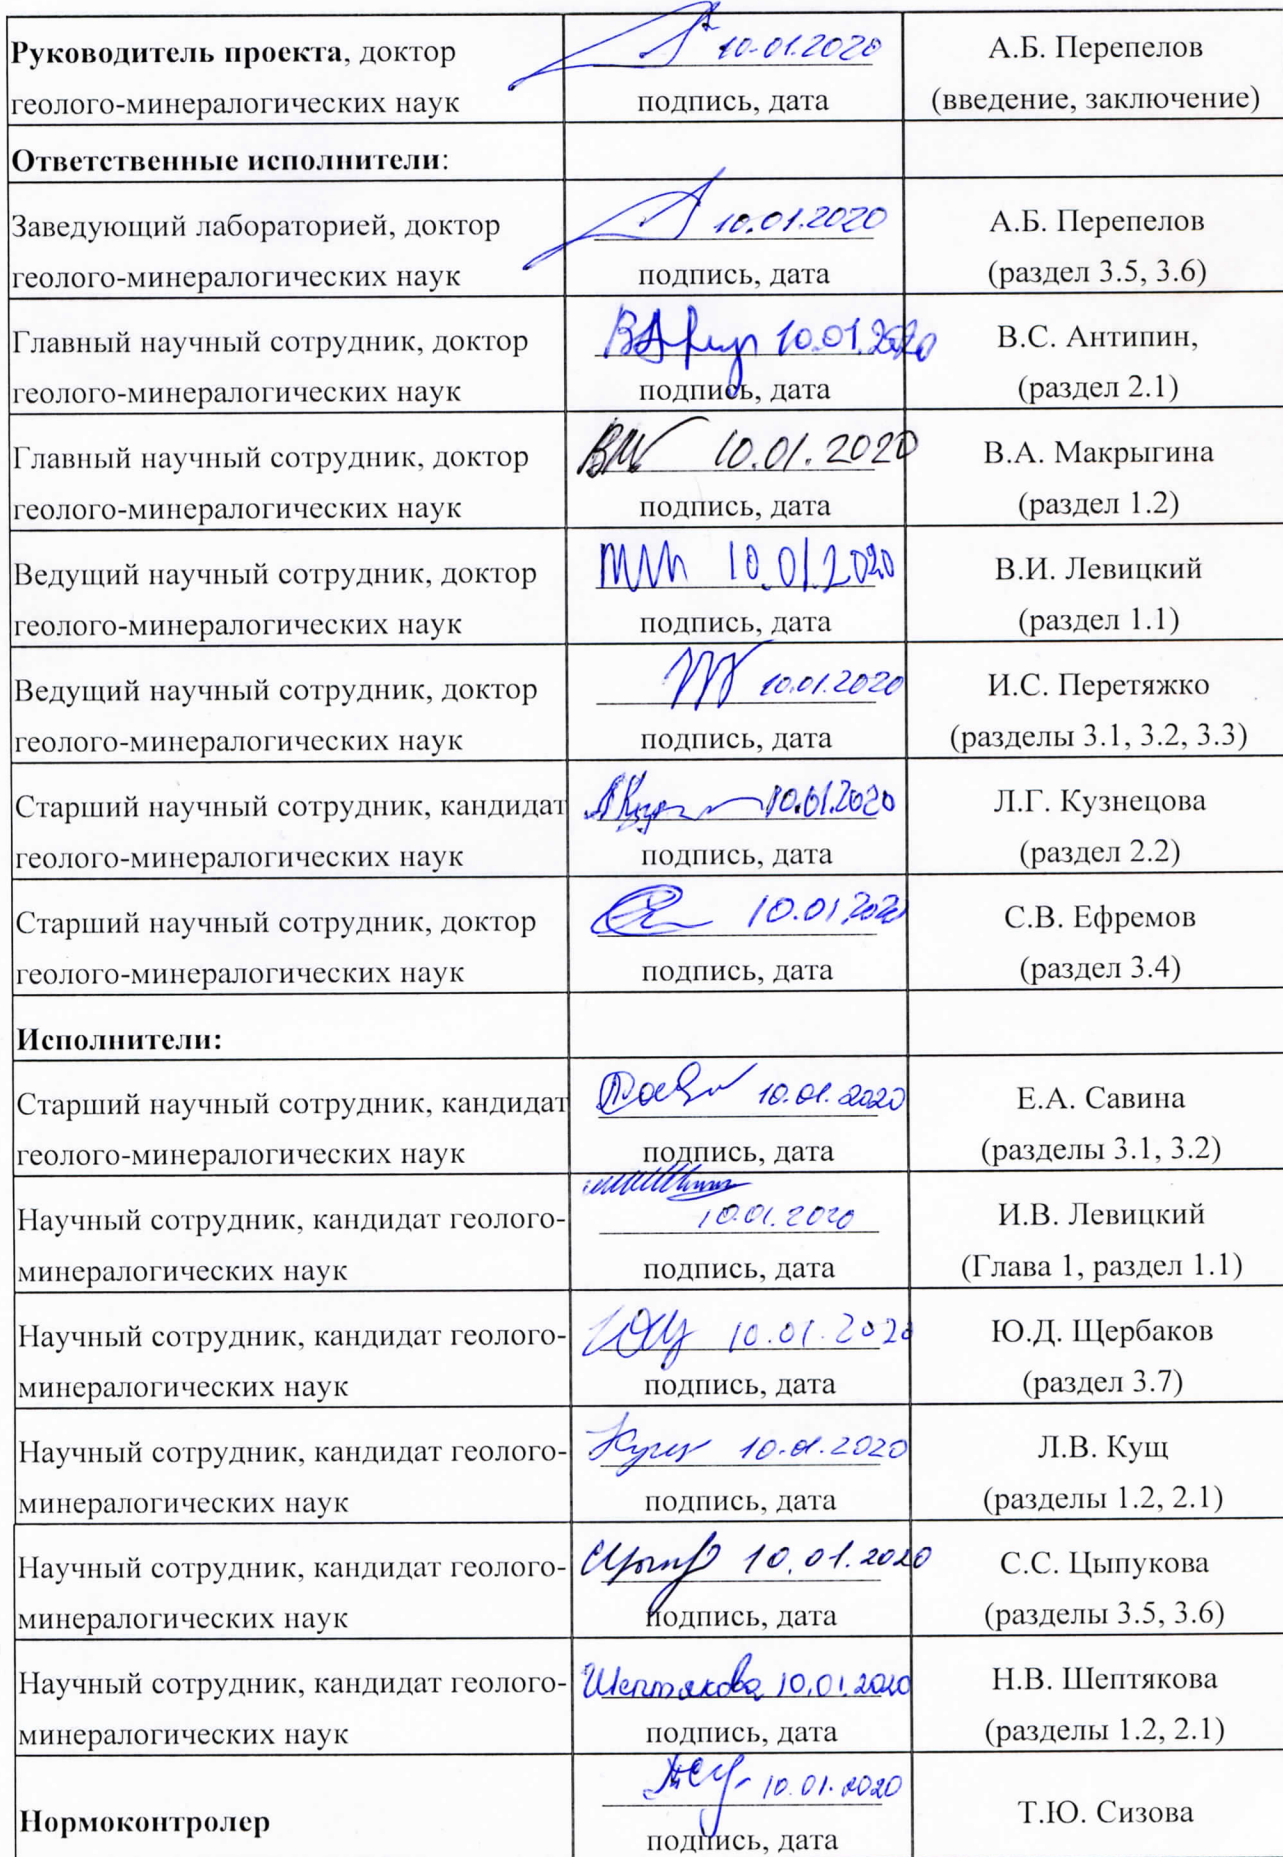 Руководитель проекта, доктор
геолого-минералогических наук
10.01.2020
подпись, дата
А.Б. Перепелов
(введение, заключение)
Ответственные исполнители:
Заведующий лабораторией, доктор
геолого-минералогических наук
10.01.2020
подпись, дата
А.Б. Перепелов
(раздел 3.5, 3.6)
Главный научный сотрудник, доктор
геолого-минералогических наук
10.01.2020
подпись, дата
В.С. Антипин,
(раздел 2.1)
Главный научный сотрудник, доктор
геолого-минералогических наук
10.01.2020
подпись, дата
В.А. Макрыгина
(раздел 1.2)
Ведущий научный сотрудник, доктор
геолого-минералогических наук
10.01.2020
подпись, дата
В.И. Левицкий
(раздел 1.1)
Ведущий научный сотрудник, доктор
геолого-минералогических наук
10.01.2020
подпись, дата
И.С. Перетяжко
(разделы 3.1, 3.2, 3.3)
Старший научный сотрудник, кандидат
геолого-минералогических наук
10.01.2020
подпись, дата
Л.Г. Кузнецова
(раздел 2.2)
Старший научный сотрудник, доктор
геолого-минералогических наук
10.01.2020
подпись, дата
С.В. Ефремов
(раздел 3.4)
Исполнители:
Старший научный сотрудник, кандидат
геолого-минералогических наук
10.01.2020
подпись, дата
Е.А. Савина
(разделы 3.1, 3.2)
Научный сотрудник, кандидат геолого-
минералогических наук
10.01.2020
подпись, дата
И.В. Левицкий
(Глава 1, раздел 1.1)
Научный сотрудник, кандидат геолого-
минералогических наук
10.01.2020
подпись, дата
Ю.Д. Щербаков
(раздел 3.7)
Научный сотрудник, кандидат геолого-
минералогических наук
10.01.2020
подпись, дата
Л.В. Кущ
(разделы 1.2, 2.1)
Научный сотрудник, кандидат геолого-
минералогических наук
10.01.2020
подпись, дата
С.С. Цыпукова
(разделы 3.5, 3.6)
Научный сотрудник, кандидат геолого-
минералогических наук
Шептякова 10.01.2020
подпись, дата
Н.В. Шептякова
(разделы 1.2, 2.1)
Нормоконтролер
10.01.2020
подпись, дата
Т.Ю. Сизова